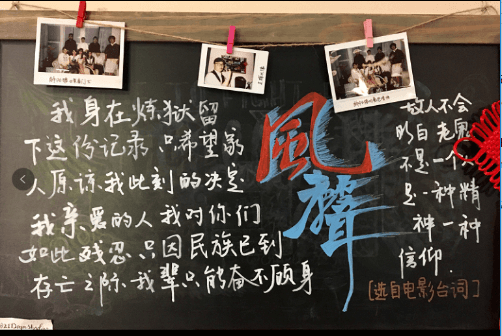 我身在炼狱留
下这份记录 只希望家
人原谅我此刻的决定
我亲爱的人 我对你们
如此残忍 只因民族已到
存亡之际 我辈只能奋不顾身
風聲
敌人不会
明白 老鬼
不是一个人
是一种精
神 一种
信仰.
[选自电影台词]